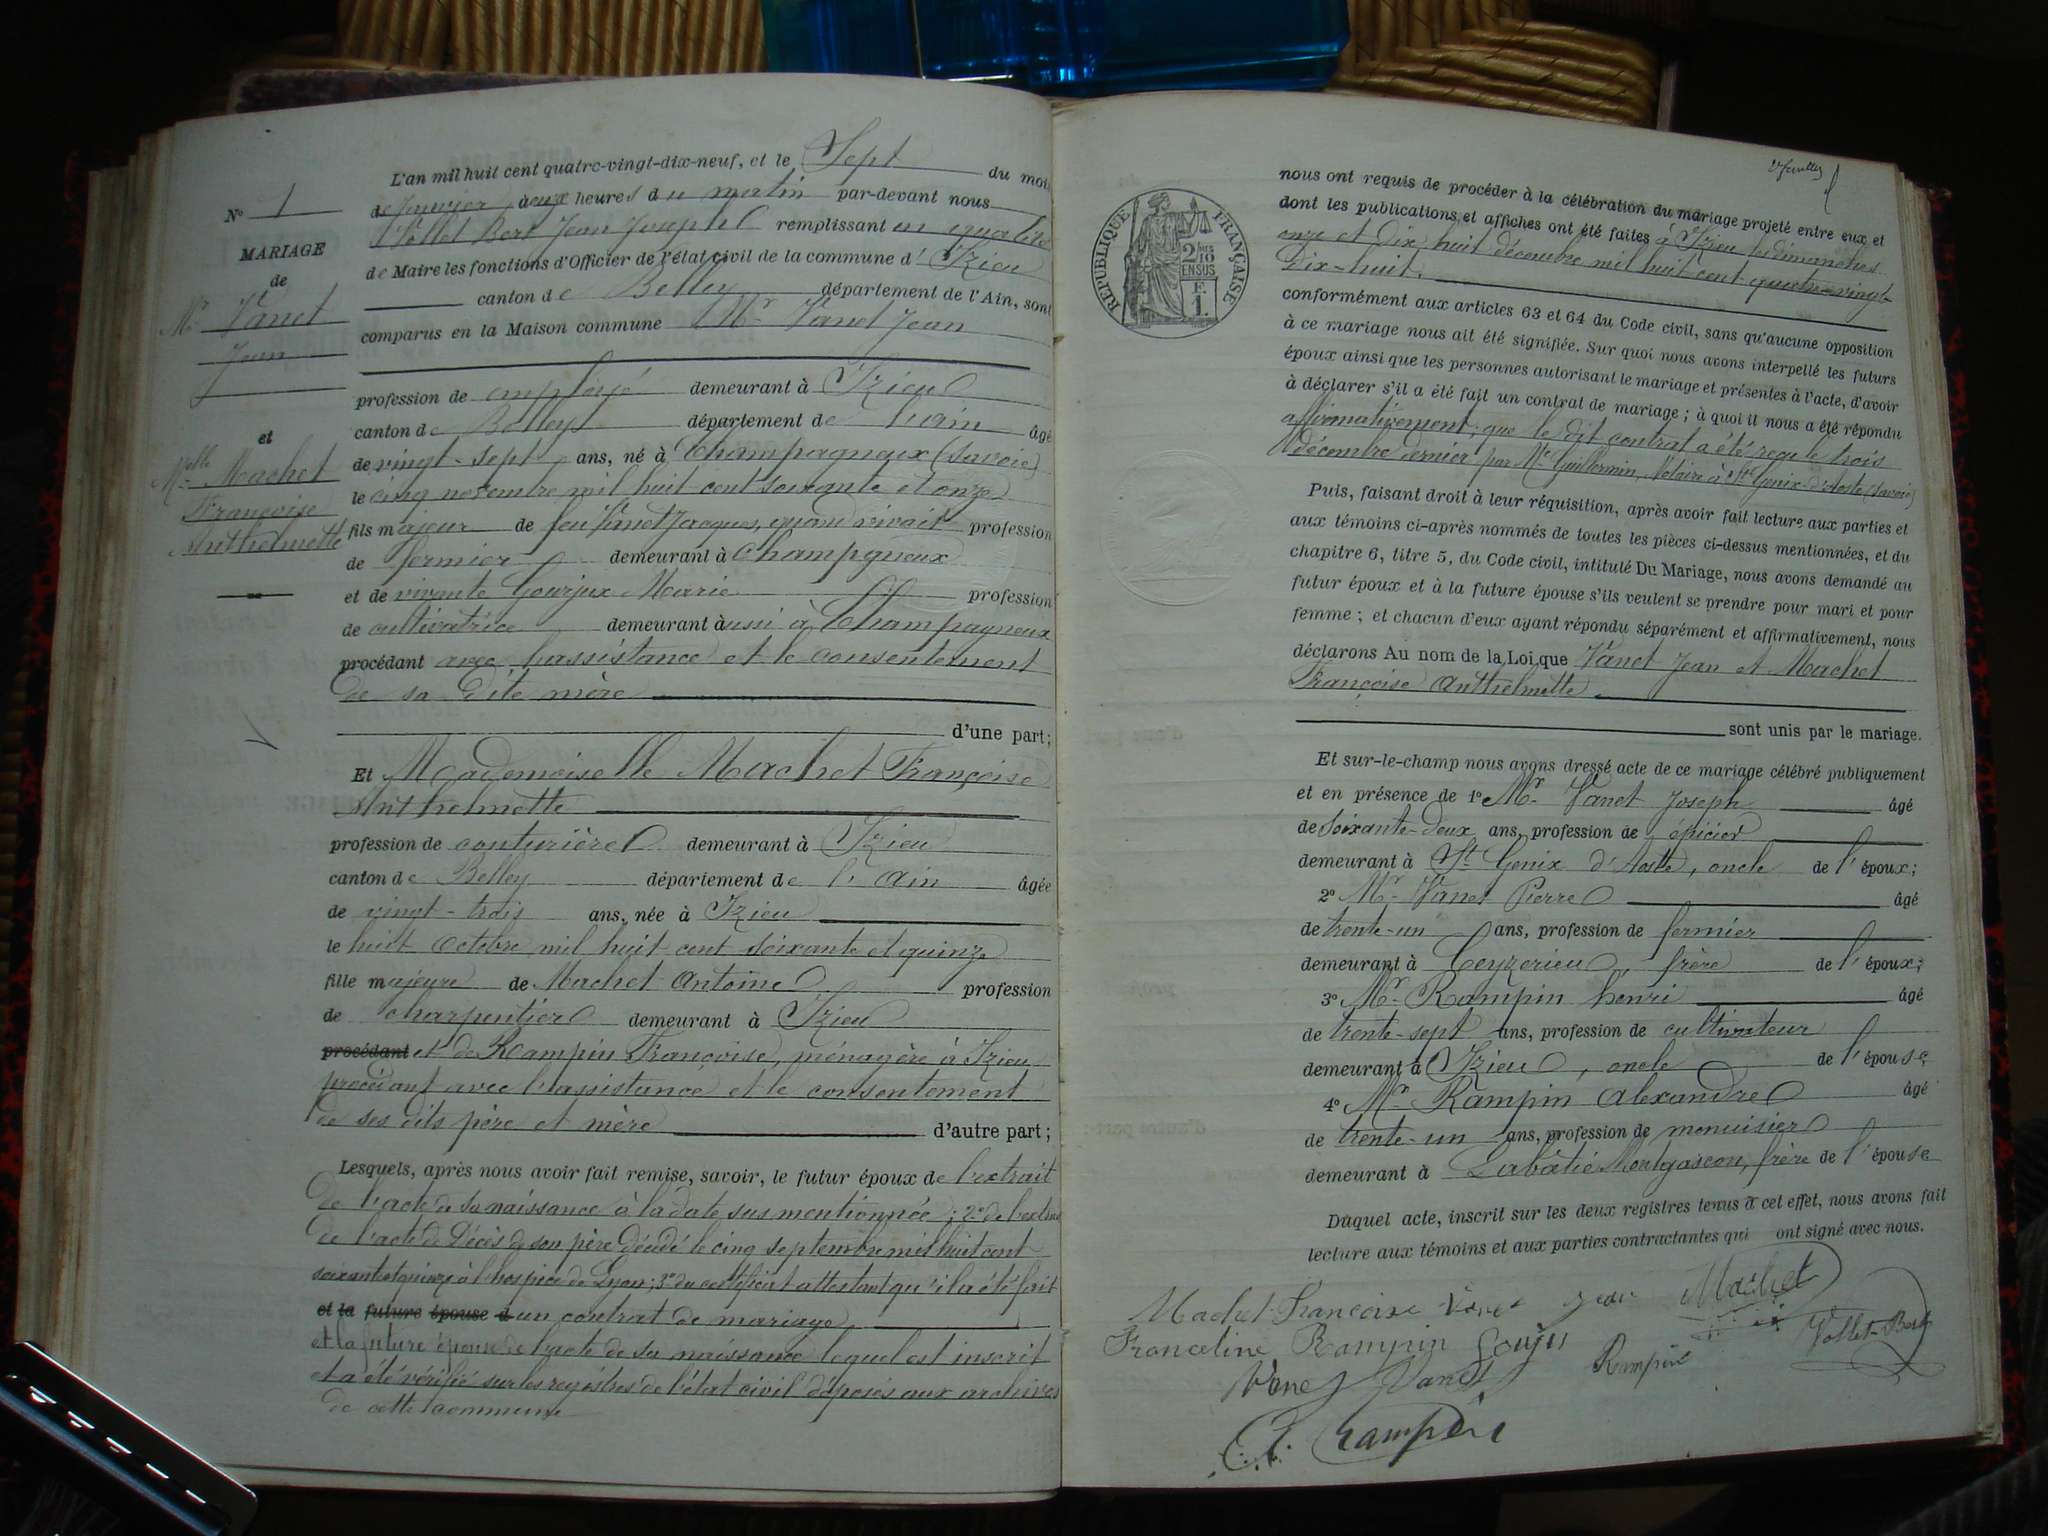 L'an mil huit cent quatre-vingt-dix-neuf, et le Sept du mois
de Janvier à onze heures du matin par-devant nous
Vollet Bert Jean Joseph remplissant en qualité
de Maire les fonctions d'Officier de l'état civil de la commune d'Izieu
canton de Belley département de l'Ain, sont
comparus en la Maison commune Mr Vanet Jean
profession de employé demeurant à Izieu
canton de Belley département de l'ain âgé
de vingt-sept ans, né à Champagneux (Savoie)
le cinq novembre mil huit cent soixante et onze
fils majeur de feu Vanet Jacques, quand vivait profession
de fermier demeurant à Champgneux
et de vivante Gourjux Marie profession
de cultivatrice demeurant aussi à Champagneux
procédant avec l'assistance et le consentement
de sa dite mère
d'une part;
Et Mademoiselle Machet Françoise
Anthelmette
profession de couturière demeurant à Izieu
canton de Belley département de l'Ain âgée
de vingt-trois ans, née à Izieu
le huit Octobre mil huit cent soixante et quinze
fille majeure de Machet Antoine profession
de charpentier demeurant à Izieu
procédant et de Rampin Françoise, ménagère à Izieu
procédant avec l'assistance et le consentement
de ses dits père et mère d'autre part;
Lesquels, après nous avoir fait remise, savoir, le futur époux de l'extrait
de l'acte de sa naissance à la date sus mentionnée; 2° de l'extrait
de l'acte de Décès de son père décédé le cinq septembre mil huit cent
soixante et quinze à l'hospice de Lyon; 3° du certificat attestant qu'il a été fait
et la future épouse d un contrat de mariage
et la future épouse de l'acte de sa naissance lequel est inscrit
et a été vérifié sur les registres de l'état civil déposés aux archives
de cette commune
N° 1
MARIAGE
de
Mr Vanet
Jean
et
Melle Machet
Françoise
Anthelmette
2 feuilles
RÉPUBLIQUE FRANÇAISE
2/10
EN SUS
F.
1.
nous ont requis de procéder à la célébration du mariage projeté entre eux et
dont les publications et affiches ont été faites à Izieu les dimanches
onze et dix huit décembre mil huit cent quatre-vingt-
Dix-huit.
conformément aux articles 63 et 64 du Code civil, sans qu'aucune opposition
à ce mariage nous ait été signifiée. Sur quoi nous avons interpellé les futurs
époux ainsi que les personnes autorisant le mariage et présentes à l'acte, d'avoir
à déclarer s'il a été fait un contrat de mariage; à quoi il nous a été répondu
affirmativement, que le dit contrat a été reçu le trois
décembre dernier par Me Guillermin, Notaire à St Genix d'Aoste (Savoie)
Puis, faisant droit à leur réquisition, après avoir fait lecture aux parties et
aux témoins ci-après nommés de toutes les pièces ci-dessus mentionnées, et du
chapitre 6, titre 5, du Code civil, intitulé Du Mariage, nous avons demandé au
futur époux et à la future épouse s'ils veulent se prendre pour mari et pour
femme; et chacun d'eux ayant répondu séparément et affirmativement, nous
déclarons Au nom de la Loi, que Vanet Jean et Machet
Françoise Anthelmette
sont unis par le mariage.
Et sur-le-champ nous avons dressé acte de ce mariage célébré publiquement
et en présence de 1° Mr Vanet Joseph âgé
de soixante-deux ans, profession de épicier
demeurant à St Genix d'Aoste, oncle de l'époux;
2° Mr Vanet Pierre âgé
de trente-un ans, profession de fermier
demeurant à Ceyzerieu, frère de l'époux;
3° Mr Rampin henri âgé
de trente-sept ans, profession de cultivateur
demeurant à Izieu, oncle de l'épouse
4° Mr Rampin Alexandre âgé
de trente-un ans, profession de menuisier
demeurant à Labâtie Montgascon, frère de l'épouse
Duquel acte, inscrit sur les deux registres tenus à cet effet, nous avons fait
lecture aux témoins et aux parties contractantes qui ont signé avec nous.
Machet Françoise Vanet Jean Machet
Franceline Rampin Gouju Vollet-Bert
Vanet Vanet Rampin
Rampin